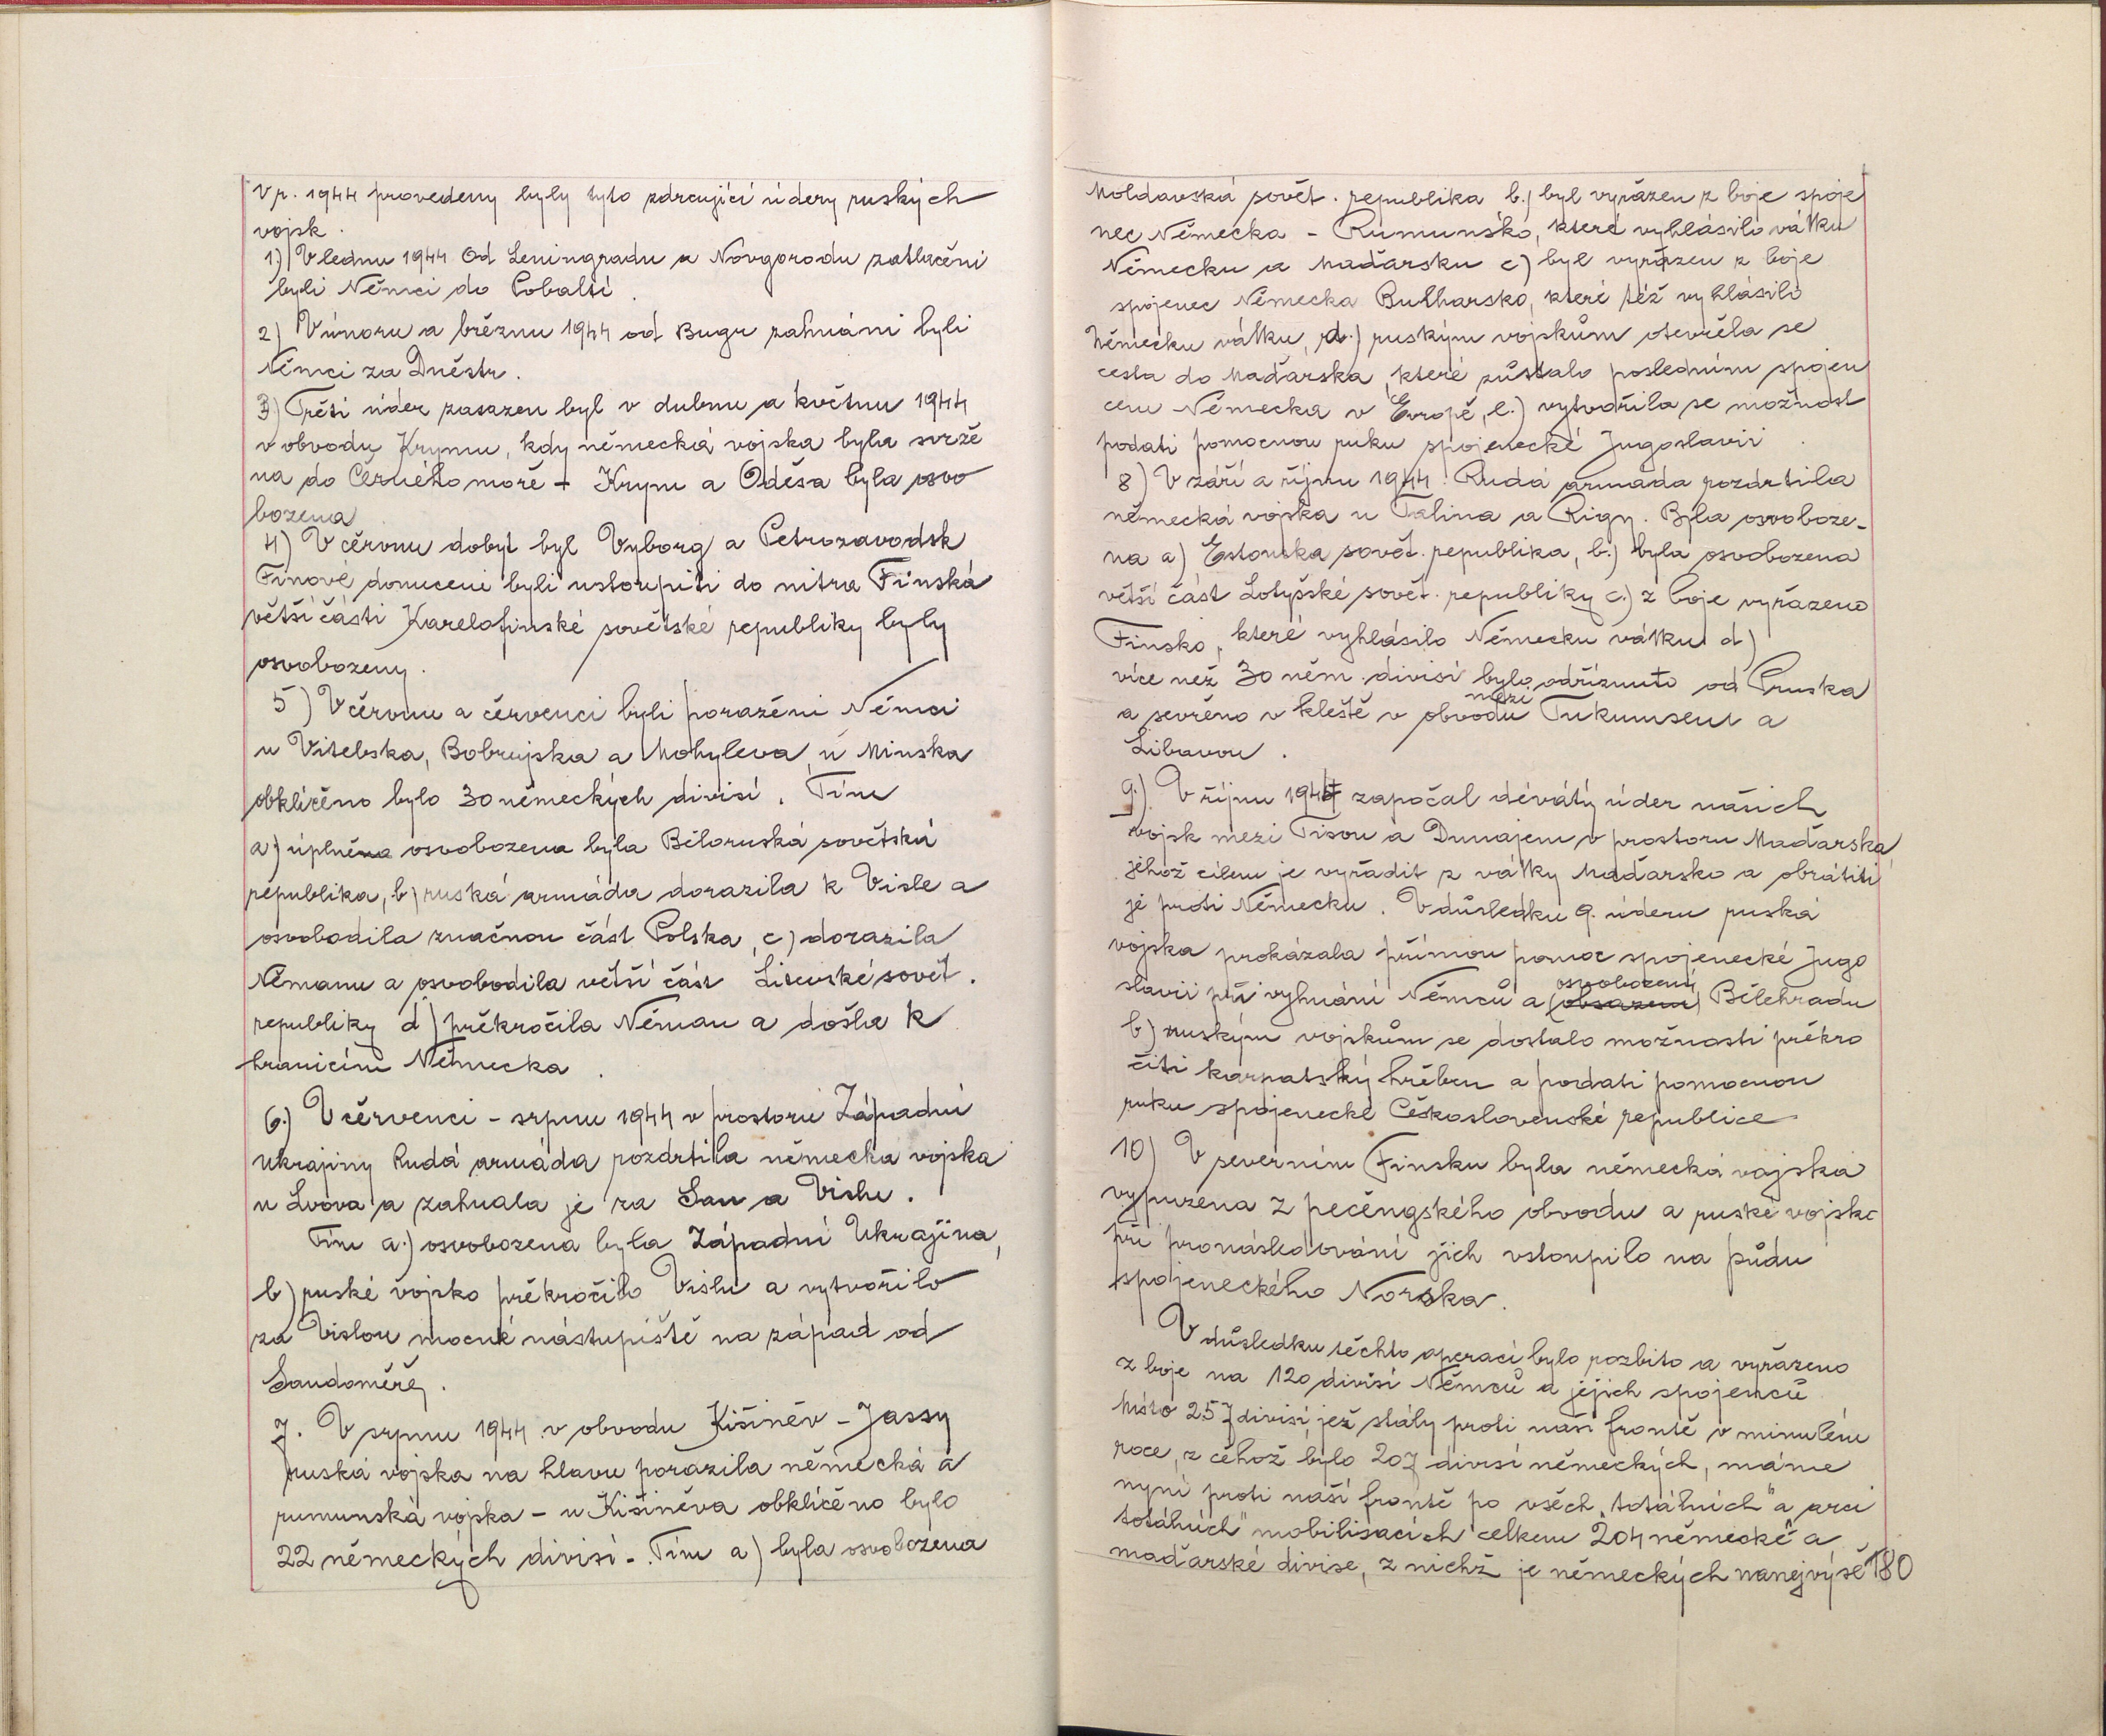 V r. 1944 provedeny byly tyto zdrcující údery ruských
vojsk.
1) V lednu 1944 od Leningradu a Novgorodu zatlačeni
byli Němci do Pobaltí.
2) V únoru a březnu 1944 od Bugu zahnáni byli
Němci za Dněstr.
3) Třetí úder zasazen byl v dubnu a květnu 1944
v obvodu Krymu, kdy německá vojska byla svrže
na do Černého moře - Krym a Oděsa byla osvo
bozena
4) V červnu dobyt byl Vyborg a Petrozavodsk
Finové donuceni byli ustoupiti do nitra Finska
větší části Karelofinské sovětské republiky byly
osvobozeny.
5) V červnu a červenci byli poraženi Němci
u Vitebska, Bobrujska a Mohyleva, u Minska
obklíčeno bylo 30 německých divisí. Tím
a) úplněna osvobozena byla Běloruská sovětská
republika, b) ruská armáda dorazila k Visle a
osvobodila značnou část Polska, c) dorazila
Němanu a osvobodila větší část Litevské sovět.
republiky d) překročila Něman a došla k
hranicím Německa.
6.) V červenci - srpnu 1944 v prostoru Západní
Ukrajiny Rudá armáda rozdrtila německa vojska
u Lvova a zahnala je za San a Vislu.
Tím a.) osvobozena byla Západní Ukrajina,
b) ruské vojsko překročilo Vislu a vytvořilo
za Vislou mocné nástupiště na západ od
Sandoměře.
7. V srpnu 1944 v obvodu Kišiněv - Jassy
ruská vojska na hlavu porazila německá a
rumunská vojska - u Kišiněva obklíčeno bylo
22 německých divisí - Tím a) byla osvobozena
Moldavská sovět. republika b.) byl vyřazen z boje spoje
nec Německa - Rumunsko, které vyhlásilo válku
Německu a Maďarsku c) byl vyřazen z boje
spojenec Německa Bulharsko, které též vyhlásilo
Německu válku, d.) ruským vojskům otevřela se
cesta do Maďarska, které zůstalo posledním spojen
cem Německa v Evropě, e.) vytvořila se možnost
podati pomocnou ruku spojenecké Jugoslavii.
8) V září a říjnu 1944. Rudá armáda rozdrtila
německá vojska u Talina a Rigy. Byla osvoboze-
na a) Estonska sovět. republika, b.) byla osvobozena
větší část Lotyšské sovět. republiky c.) z boje vyřazeno
Finsko, které vyhlásilo Německu válku d)
více než 30 něm. divisí bylo odříznuto od Pruska
a sevřeno v kleště v obvodu mezi Tukumsem a
Libavou.
9.) V říjnu 1944 započal devátý úder našich
vojsk mezi Tisou a Dunajem v prostoru Maďarska,
jehož cílem je vyřadit z války Maďarsko a obrátiti
je proti Německu. V důsledku 9. úderu ruská
vojska prokázala přímou pomoc spojenecké Jugo
slavii při vyhnání Němců a (obsazení) osvobození Bělehradu
b) ruským vojskům se dostalo možnosti překro
čiti karpatský hřeben a podati pomocnou
ruku spojenecké Československé republice
10) V severním Finsku byla německá vojska
vypuzena z pečengského obvodu a ruské vojsko
při pronásledování jich vstoupilo na půdu
spojeneckého Norska.
V důsledku těchto operací bylo rozbito a vyřazeno
z boje na 120 divisí Němců a jejich spojenců
Místo 257 divisí, jež stály proti naší frontě v minulém
roce, z čehož bylo 207 divisí německých, máme
nyní proti naší frontě po všech „totálních" a arci
totálních" mobilisacích celkem 204 německé a
maďarské divise, z nichž je německých nanejvýše 180